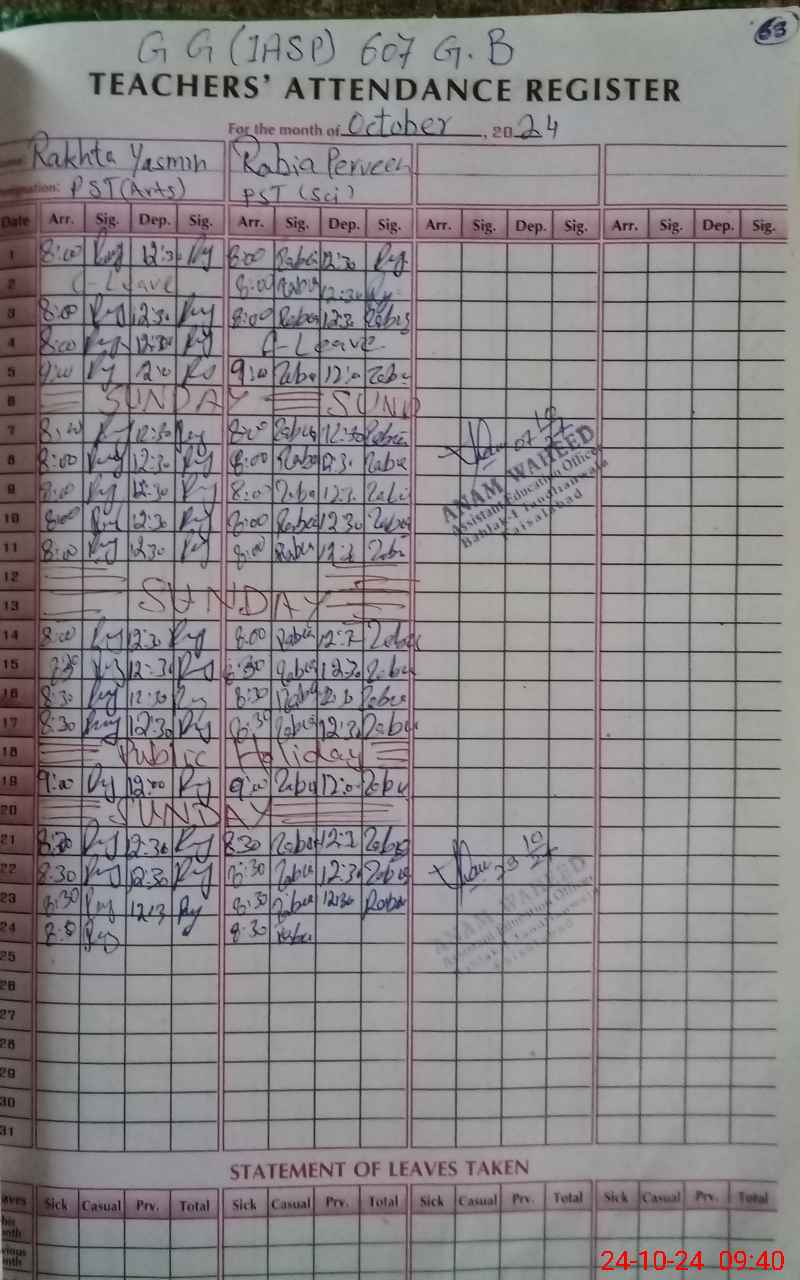 63
G G (IASP) 607 G.B
TEACHERS' ATTENDANCE REGISTER
For the month of October, 2024
Rakhta Yasmin Rabia Perveen
Designation: PST (Arts) PST (Sci)
Date Arr. Sig. Dep. Sig. Arr. Sig. Dep. Sig. Arr. Sig. Dep. Sig. Arr. Sig. Dep. Sig.
1 8:00 Ry 12:30 Ry 8:00 Rabia 12:30 Ry
2 C-Leave 8:00 Rabia 12:30 Ry
3 8:00 Ry 12:30 Ry 8:00 Rabia 12:3 Rabia
4 8:00 Ry 12:30 Ry C-Leave
5 9:00 Ry Ry 9:00 Rabia 12:0 Rabia
6 SUNDAY SUND
7 8:00 Ry 12:30 Ry 8:00 Rabia 12:30 Rabia
8 8:00 Ry 12:30 Ry 8:00 Rabia 12:3 Rabia
9 8:00 Ry 12:30 Ry 8:00 Rabia 12:3 Rabia
10 8:00 Ry 12:30 Ry 8:00 Rabia 12:30 Rabia
11 8:00 Ry 12:30 Ry 8:00 Rabia 12:3 Rabia
07 10 24
ANAM WAHEED
Assistant Education Officer
Bahlak-I Tandlianwala
Faisalabad
12
13 SUNDAY
14 8:00 Ry 12:30 Ry 8:00 Rabia 12:3 Rabia
15 8:30 Ry 12:30 Ry 8:30 Rabia 12:30 Rabia
16 8:30 Ry 12:30 Ry 8:30 Rabia 12:30 Rabia
17 8:30 Ry 12:30 Ry 8:30 Rabia 12:30 Rabia
18 Public Holiday
19 9:00 Ry 12:00 Ry 9:00 Rabia 12:0 Rabia
20 SUNDAY
21 8:30 Ry 12:30 Ry 8:30 Rabia 12:3 Rabia
22 8:30 Ry 12:30 Ry 8:30 Rabia 12:30 Rabia
23 8:30 Ry 12:3 Ry 8:30 Rabia 12:30 Rabia
24 Ry 8:30 Rabia
23 10 24
ANAM WAHEED
Assistant Education Officer
25
26
27
28
29
30
31
STATEMENT OF LEAVES TAKEN
Sick Casual Prv. Total Sick Casual Prv. Total Sick Casual Prv. Total Sick Casual Prv. Total
24-10-24 09:40